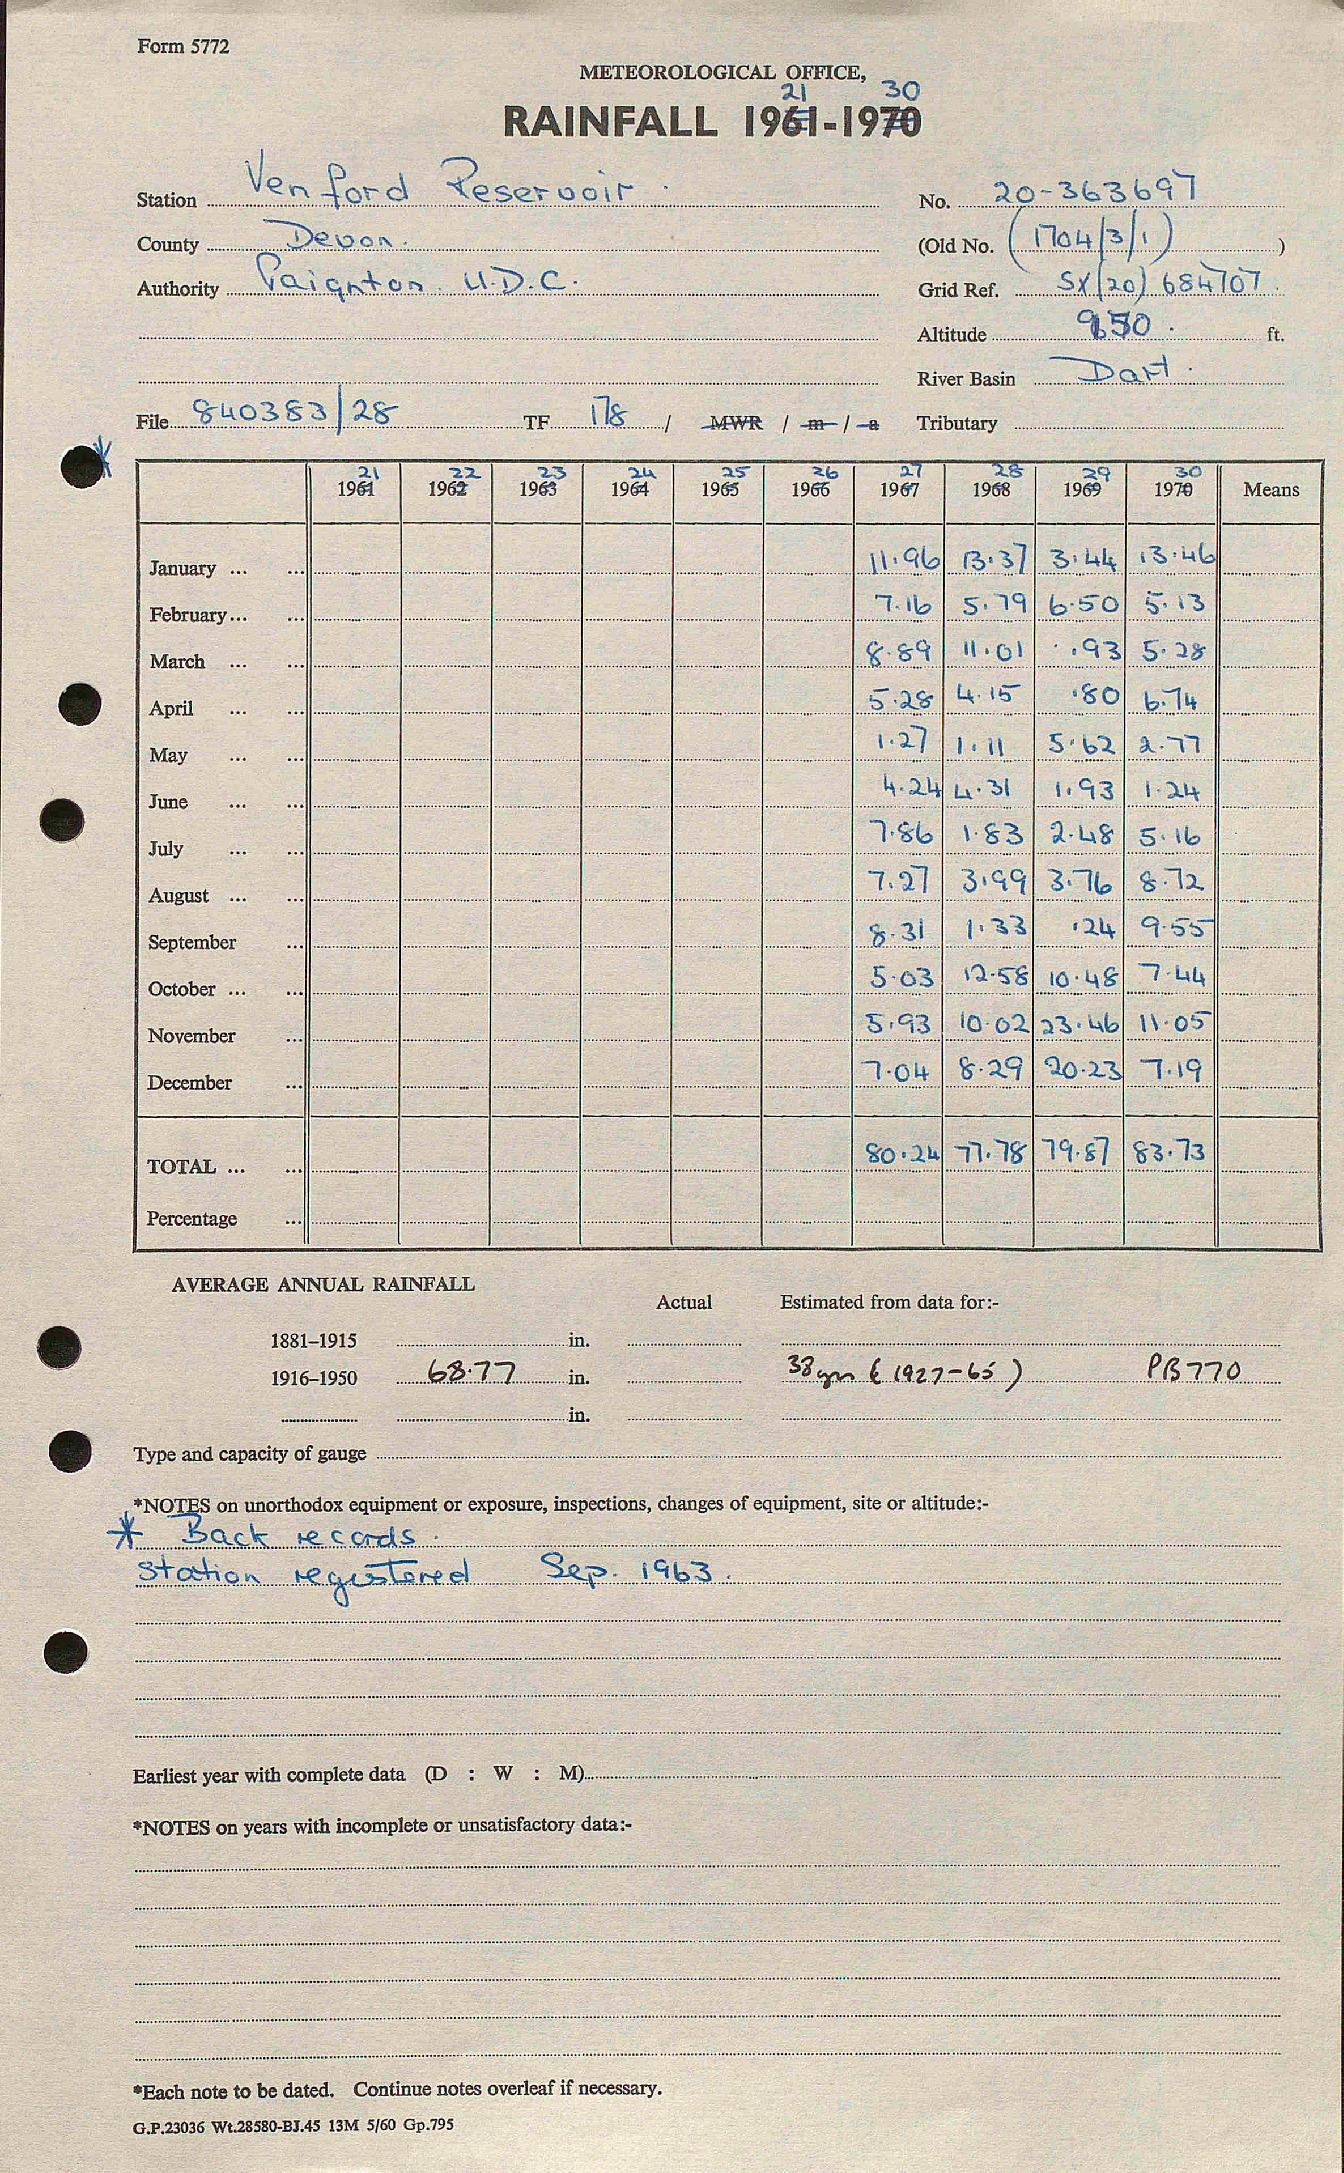 Form 5772
METEOROLOGICAL OFFICE,
21 30
RAINFALL 1961-1970
Station Venford Reservoir. No. 20-363697
County Devon. (Old No. (1704/3/1) )
Authority Paignton U.D.C. Grid Ref. SX(20) 684707.
Altitude 950. ft.
River Basin Dart.
File 840383/28 TF 178 / MWR / m / a Tributary
*
21 22 23 24 25 26 27 28 29 30
1961 1962 1963 1964 1965 1966 1967 1968 1969 1970 Means
January ... ... 11.96 13.37 3.44 13.46
February ... ... 7.16 5.79 6.50 5.13
March ... ... 8.89 11.01 .93 5.28
April ... ... 5.28 4.15 .80 6.74
May ... ... 1.27 1.11 5.62 2.77
June ... ... 4.24 4.31 1.93 1.24
July ... ... 7.86 1.83 2.48 5.16
August ... ... 7.27 3.99 3.76 8.72
September ... 8.31 1.33 .24 9.55
October ... ... 5.03 12.58 10.48 7.44
November ... 5.93 10.02 23.46 11.05
December ... 7.04 8.29 20.23 7.19
TOTAL ... ... 80.24 77.78 79.87 83.73
Percentage ...
AVERAGE ANNUAL RAINFALL
Actual Estimated from data for:-
1881–1915 in.
1916–1950 68.77 in. 38 yrs (1927-65) PB770
in.
Type and capacity of gauge
*NOTES on unorthodox equipment or exposure, inspections, changes of equipment, site or altitude:-
* Back records.
Station registered Sep. 1963.
Earliest year with complete data (D : W : M)
*NOTES on years with incomplete or unsatisfactory data:-
*Each note to be dated. Continue notes overleaf if necessary.
G.P.23036 Wt.28580-BJ.45 13M 5/60 Gp.795